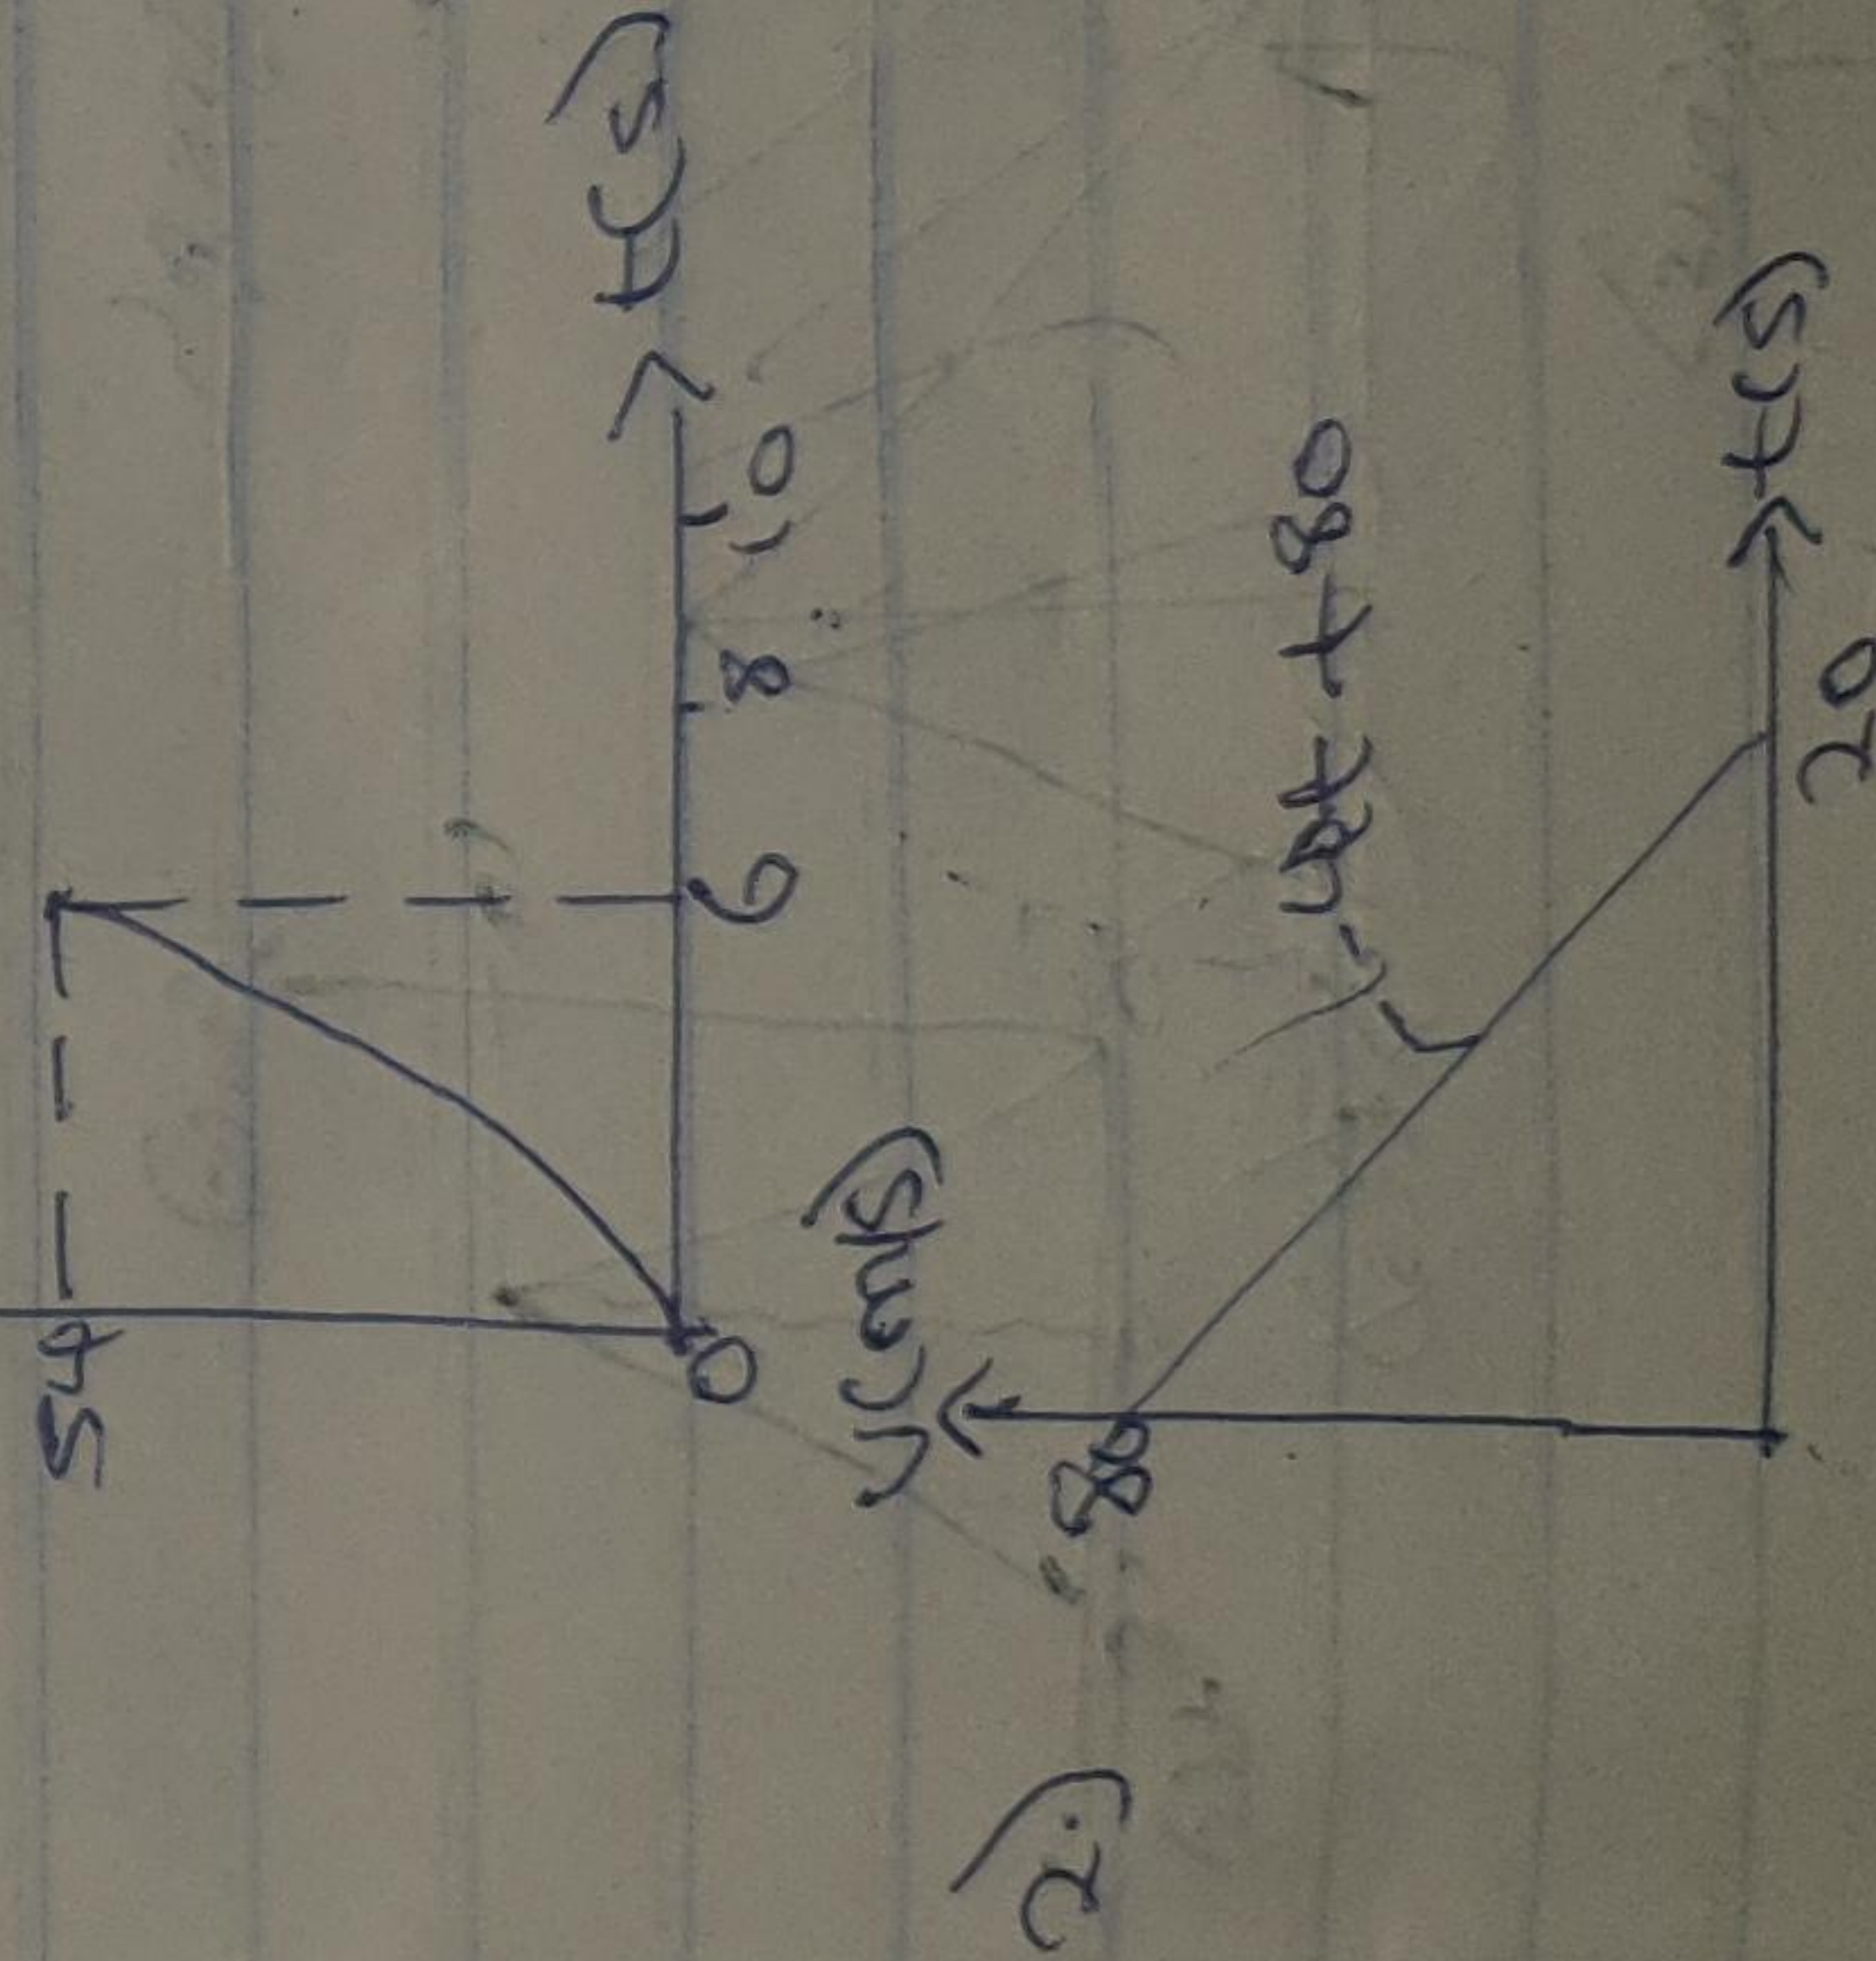 54
0 6 8 10 t(s)
v(m/s)
2.)
80
-4t + 80
20
t(s)